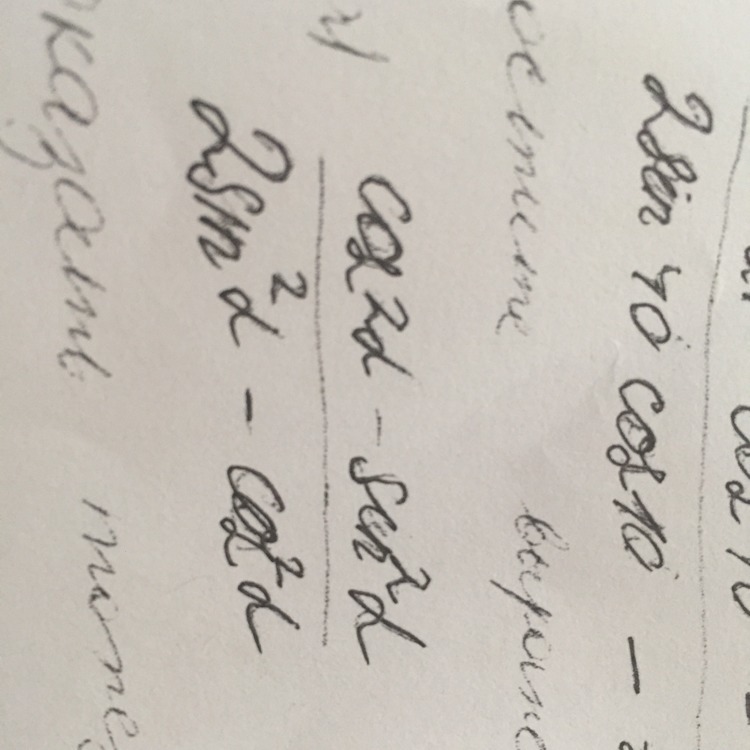 cos 10
2sin 40° cos 10° -
остите выраже
г) cos 2α - sin²α
2sin²α - cos²α
казать тоже